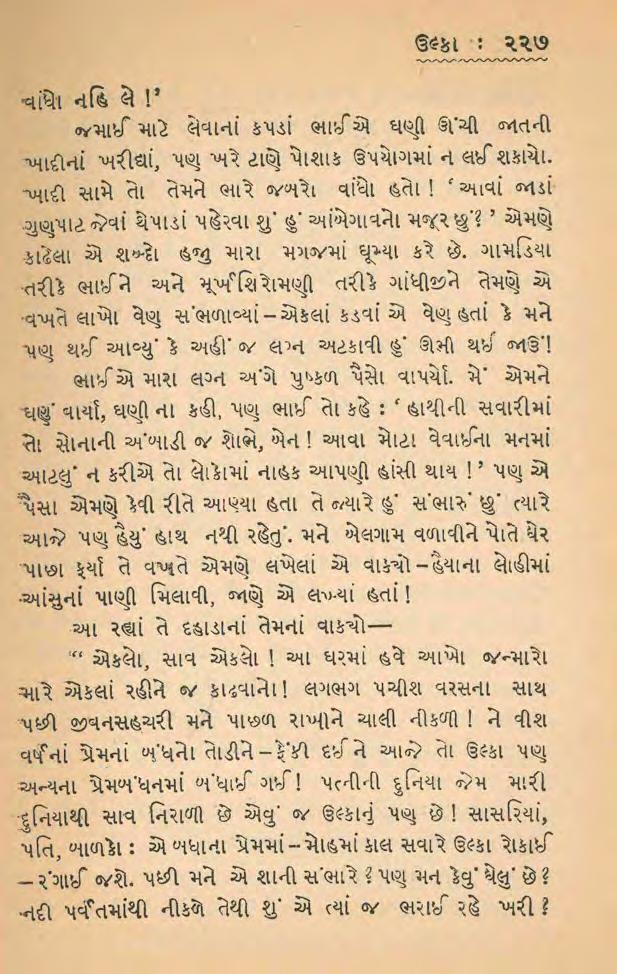 ઉલ્કા : ૨૨૭
વાંધો નહિ લે !’
જમાઈ માટે લેવાનાં કપડાં ભાઈએ ઘણી ઊંચી જાતની
ખાદીનાં ખરીદ્યાં, પણ ખરે ટાણે પોશાક ઉપયોગમાં ન લઈ શકાયો.
ખાદી સામે તો તેમને ભારે જબરો વાંધો હતો ! ‘ આવાં જાડાં
ગુણપાટ જેવાં થેપાડાં પહેરવા શું હું આંબેગાવનો મજૂર છું? ’ એમણે
કાઢેલા એ શબ્દો હજુ મારા મગજમાં ઘૂમ્યા કરે છે. ગામડિયા
તરીકે ભાઈને અને મૂર્ખશિરોમણી તરીકે ગાંધીજીને તેમણે એ
વખતે લાખો વેણ સંભળાવ્યાં – એકલાં કડવાં એ વેણ હતાં કે મને
પણ થઈ આવ્યું કે અહીં જ લગ્ન અટકાવી હું ઊભી થઈ જાઉં!
ભાઈએ મારા લગ્ન અંગે પુષ્કળ પૈસો વાપર્યો. મેં એમને
ઘણું વાર્યા, ઘણી ના કહી, પણ ભાઈ તો કહે : ‘ હાથીની સવારીમાં
તો સોનાની અંબાડી જ શોભે, બેન ! આવા મોટા વેવાઈના મનમાં
આટલું ન કરીએ તો લોકોમાં નાહક આપણી હાંસી થાય ! ’ પણ એ
પૈસા એમણે કેવી રીતે આણ્યા હતા તે જ્યારે હું સંભારું છું ત્યારે
આજે પણ હૈયું હાથ નથી રહેતું. મને બેલગામ વળાવીને પોતે ઘેર
પાછા ફર્યા તે વખતે એમણે લખેલાં એ વાક્યો – હૈયાના લોહીમાં
આંસુનાં પાણી મિલાવી, જાણે એ લખ્યાં હતાં !
આ રહ્યાં તે દહાડાનાં તેમનાં વાક્યો—
“ એકલો, સાવ એકલો ! આ ઘરમાં હવે આખો જન્મારો
મારે એકલાં રહીને જ કાઢવાનો! લગભગ પચીશ વરસના સાથ
પછી જીવનસહચરી મને પાછળ રાખીને ચાલી નીકળી ! ને વીશ
વર્ષનાં પ્રેમનાં બંધનો તોડીને – ફેંકી દઈ ને આજે તો ઉલ્કા પણ
અન્યના પ્રેમબંધનમાં બંધાઈ ગઈ! પત્નીની દુનિયા જેમ મારી
દુનિયાથી સાવ નિરાળી છે એવું જ ઉલ્કાનું પણ છે ! સાસરિયાં,
પતિ, બાળકો : એ બધાના પ્રેમમાં – મોહમાં કાલ સવારે ઉલ્કા રોકાઈ
– રંગાઈ જશે. પછી મને એ શાની સંભારે ? પણ મન કેવું ઘેલું છે?
નદી પર્વતમાંથી નીકળે તેથી શું એ ત્યાં જ ભરાઈ રહે ખરી ?